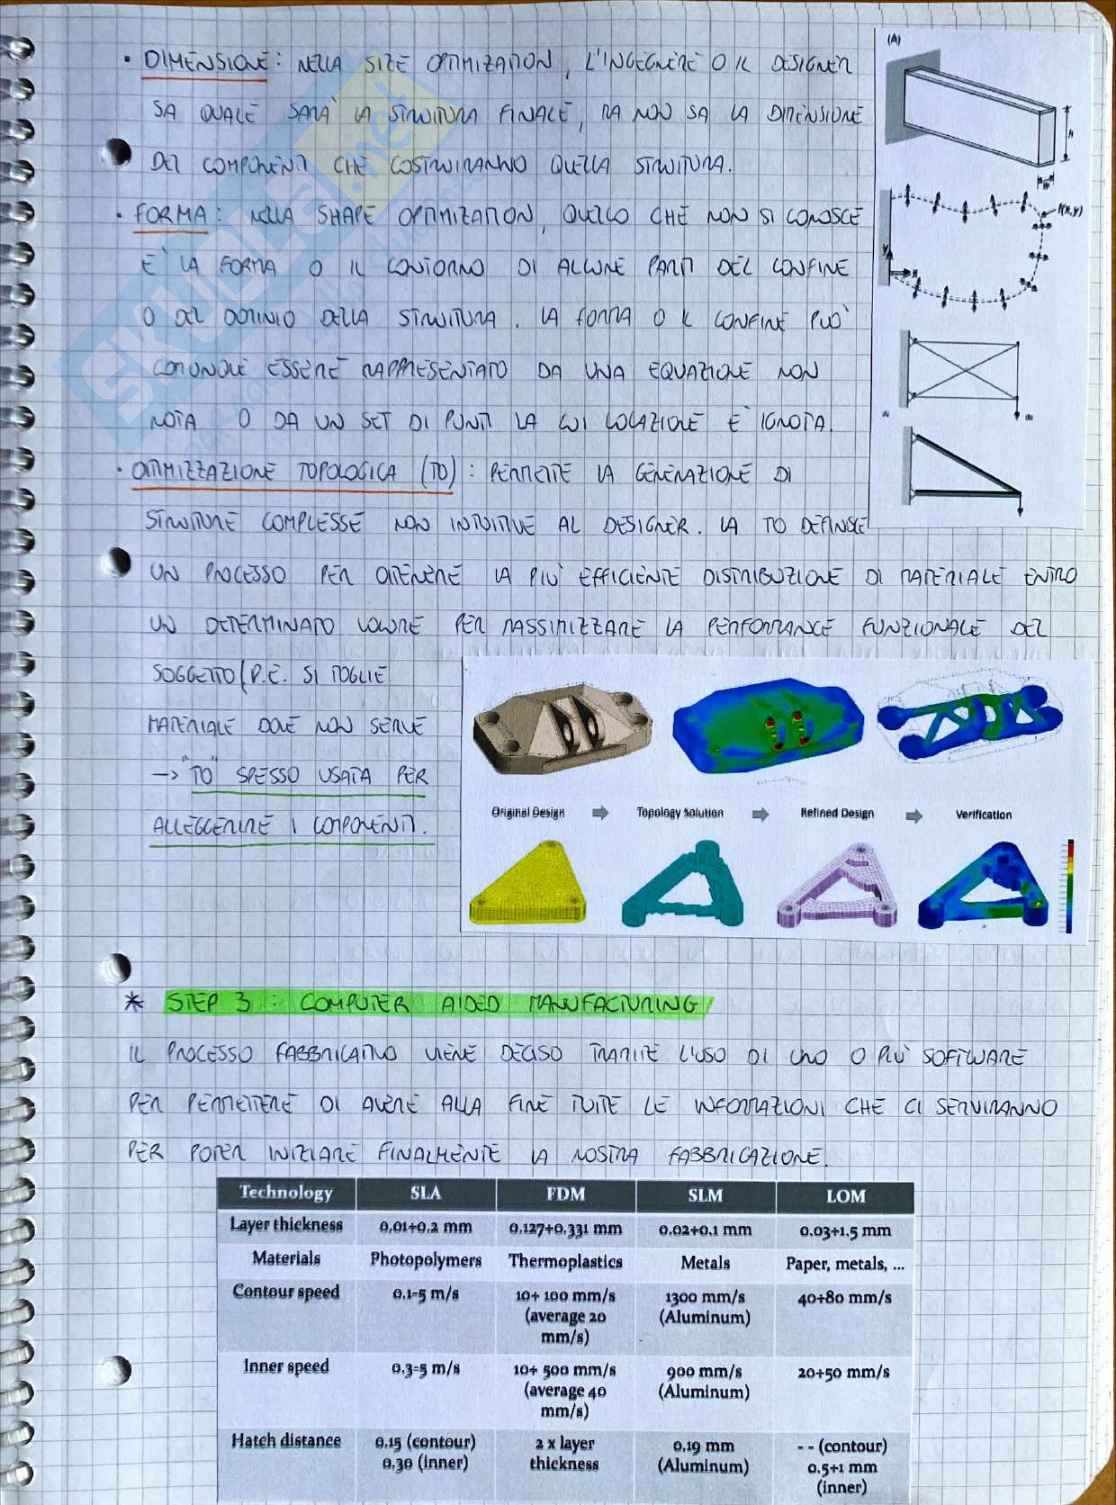 • DIMENSIONE: NELLA SIZE OPTIMIZATION, L'INGEGNERE O IL DESIGNER
SA QUALE SARÀ LA STRUTTURA FINALE, MA NON SA LA DIMENSIONE
DEI COMPONENTI CHE COSTRUIRANNO QUELLA STRUTTURA.
• FORMA: NELLA SHAPE OPTIMIZATION, QUELLO CHE NON SI CONOSCE
E' LA FORMA O IL CONTORNO DI ALCUNE PARTI DEL CONFINE
O DEL DOMINIO DELLA STRUTTURA. LA FORMA O IL CONFINE PUO'
COMUNQUE ESSERE RAPPRESENTATO DA UNA EQUAZIONE NON
NOTA O DA UN SET DI PUNTI LA CUI LOCAZIONE E' IGNOTA.
• OTTIMIZZAZIONE TOPOLOGICA (TO): PERMETTE LA GENERAZIONE DI
STRUTTURE COMPLESSE NON INTUITIVE AL DESIGNER. LA TO DEFINISCE
UN PROCESSO PER OTTENERE LA PIU' EFFICIENTE DISTRIBUZIONE DI MATERIALE ENTRO
UN DETERMINATO VOLUME PER MASSIMIZZARE LA PERFORMANCE FUNZIONALE DEL
SOGGETTO (P.E. SI TOGLIE
MATERIALE DOVE NON SERVE
—> "TO" SPESSO USATA PER
ALLEGGERIRE I COMPONENTI.
(A)
h
f(x,y)
y
x
SKUOLA.net
Original Design
Topology Solution
Refined Design
Verification
* STEP 3: COMPUTER AIDED MANUFACTURING
IL PROCESSO FABBRICATIVO VIENE DECISO TRAMITE L'USO DI UNO O PIU' SOFTWARE
PER PERMETTERE DI AVERE ALLA FINE TUTTE LE INFORMAZIONI CHE CI SERVIRANNO
PER POTER INIZIARE FINALMENTE LA NOSTRA FABBRICAZIONE.
Technology SLA FDM SLM LOM
Layer thickness 0.01÷0.2 mm 0.127÷0.331 mm 0.02÷0.1 mm 0.03÷1.5 mm
Materials Photopolymers Thermoplastics Metals Paper, metals, ...
Contour speed 0.1÷5 m/s 10÷ 100 mm/s 1300 mm/s 40÷80 mm/s
(average 20 (Aluminum)
mm/s)
Inner speed 0.3÷5 m/s 10÷ 500 mm/s 900 mm/s 20÷50 mm/s
(average 40 (Aluminum)
mm/s)
Hatch distance 0.15 (contour) 2 x layer 0.19 mm - - (contour)
0.30 (inner) thickness (Aluminum) 0.5÷1 mm
(inner)